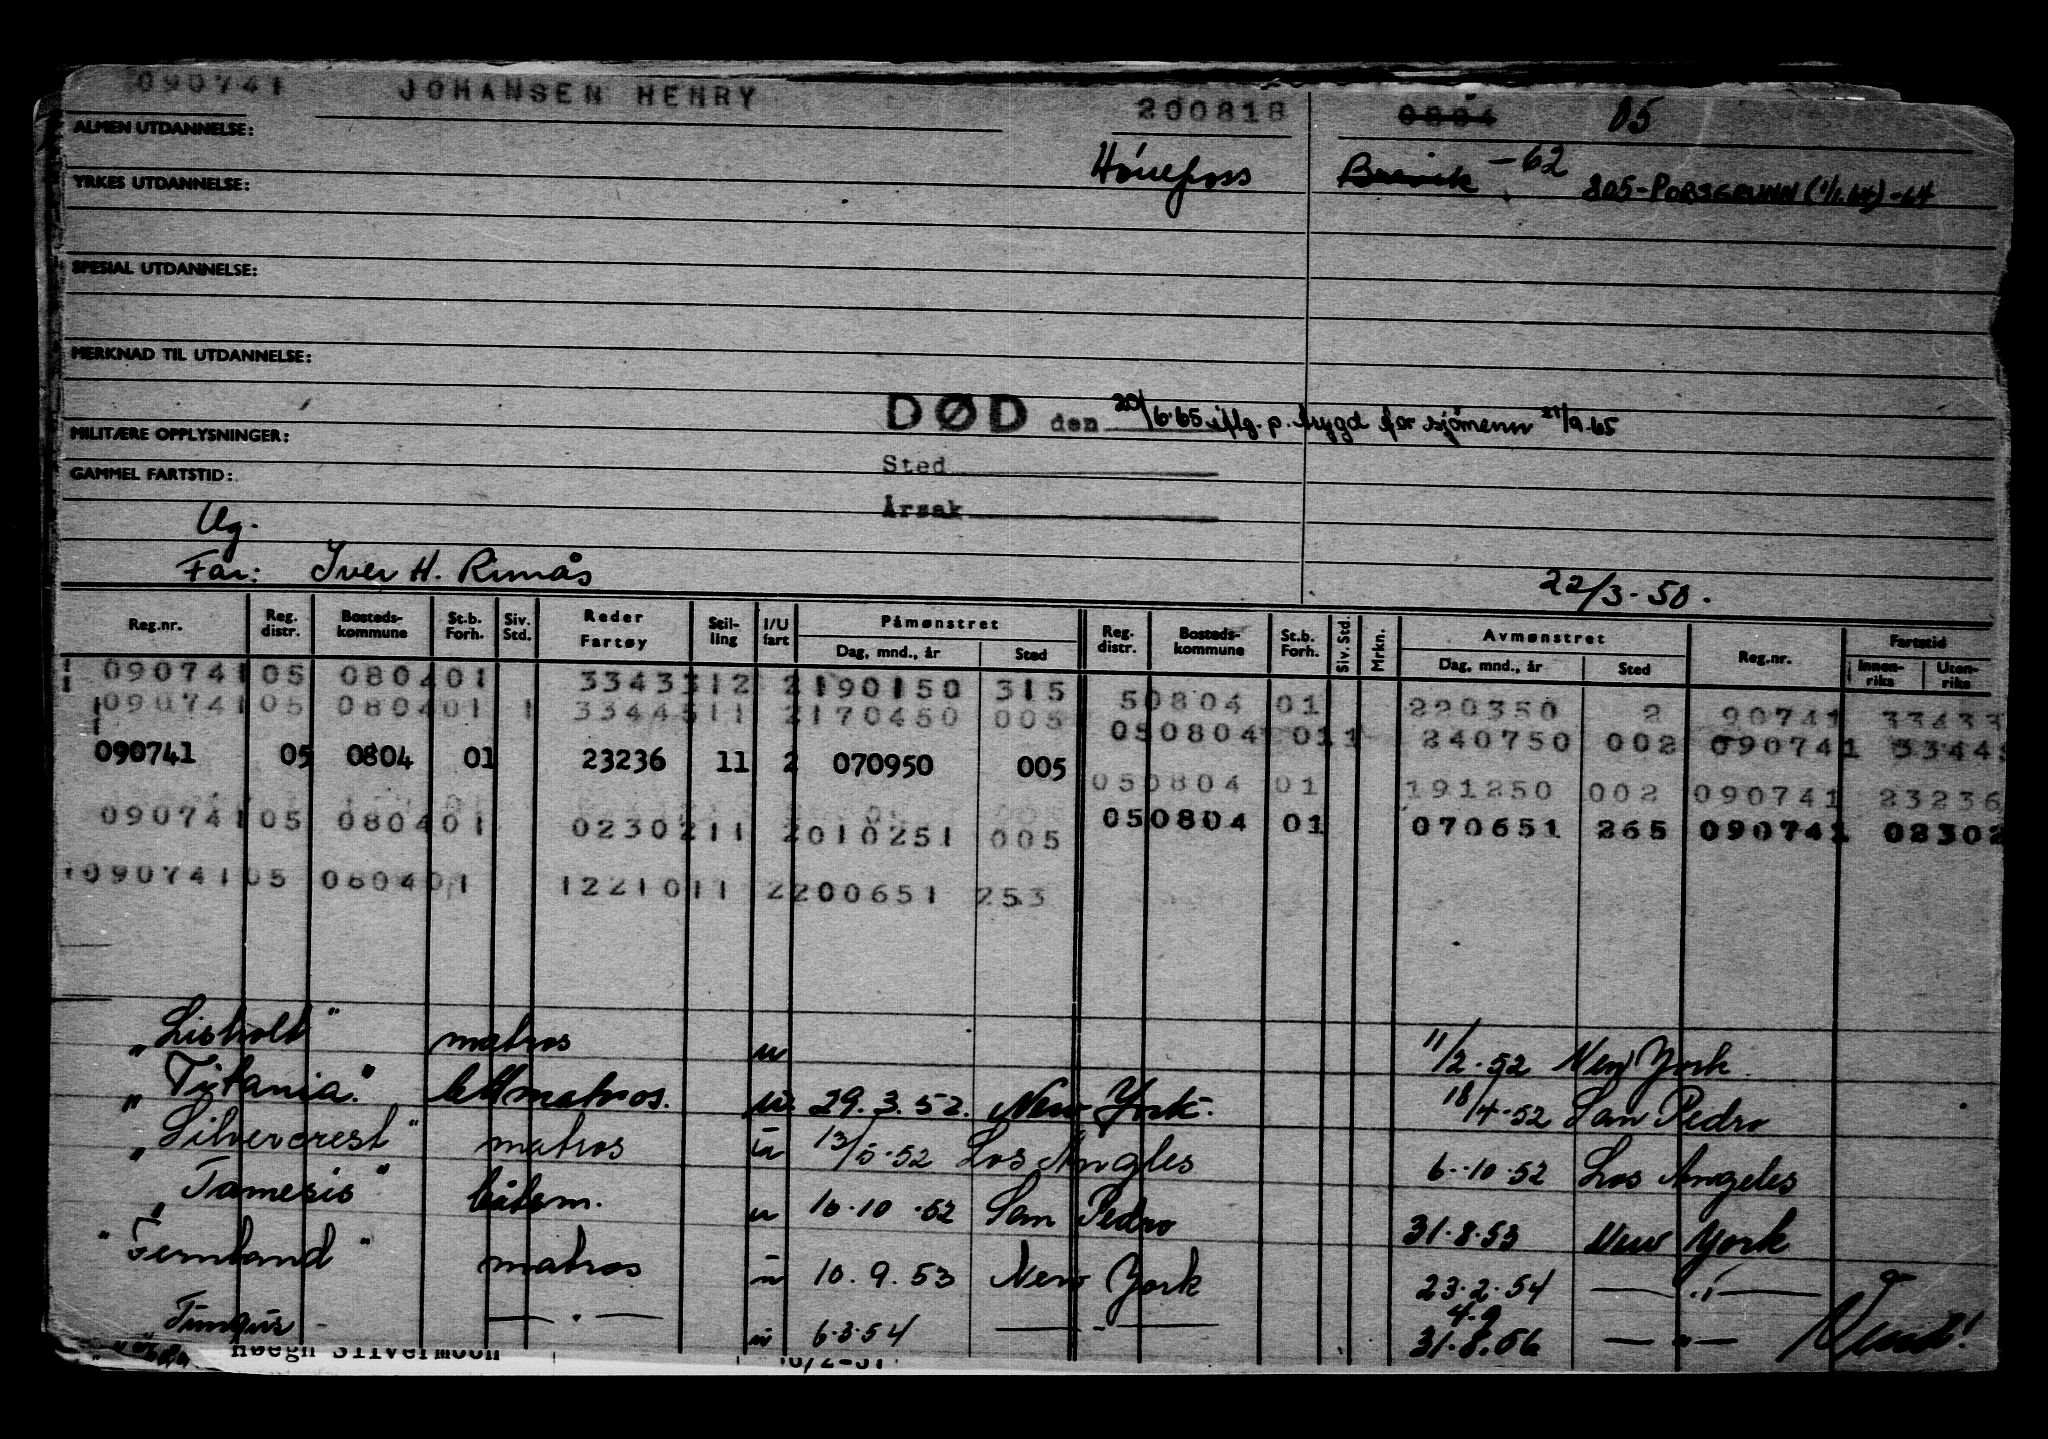 090741 JOHANSEN HENRY 200818 0804 05
ALMEN UTDANNELSE:
Hönefoss Brevik -62 805-PORSGRUNN (1/1.64) -64
YRKES UTDANNELSE:
SPESIAL UTDANNELSE:
MERKNAD TIL UTDANNELSE:
DØD den 20/6.65 iflg. p. trygd for sjömenn 21/9.65
MILITÆRE OPPLYSNINGER:
Sted
GAMMEL FARTSTID:
Årsak
Ug.
Far: Iver H. Rimås 22/3-50.
Reg.nr. Reg. distr. Bosteds-kommune St.b. Forh. Siv. Std. Reder Fartøy Stil-ling I/U fart Påmønstret Dag, mnd., år Sted Reg. distr. Bosteds-kommune St.b. Forh. Siv. Std. Mrkn. Avmønstret Dag, mnd., år Sted Reg.nr. Fartstid Innen-riks Uten-riks
090741 05 0804 01 33433 12 2 190150 315 5 0804 01 220350 2 90741 33433
090741 05 0804 01 1 33445 11 2 170450 005 05 0804 01 1 240750 002 090741 33445
090741 05 0804 01 23236 11 2 070950 005 05 0804 01 191250 002 090741 23236
090741 05 0804 01 02302 11 2 010251 005 05 0804 01 070651 265 090741 02302
090741 05 0804 01 12210 11 2 200651 253
"Lisholt" matros u 11/2.52 New York
"Titania" lettmatros. u. 29.3.52. New York. 18/4.52 San Pedro
"Silvercrest" matros u 13/5.52 Los Angles 6.10.52 Los Angeles
"Tamesis" båtsm. u 16.10.52 San Pedro 31.8.53 New York
"Fernland" matros u 10.9.53 New York 23.2.54 — " —
Tungus — " — u 6.3.54 — " — 4.9 31.8.56 — " — Vend!
Høegh Silvermoon